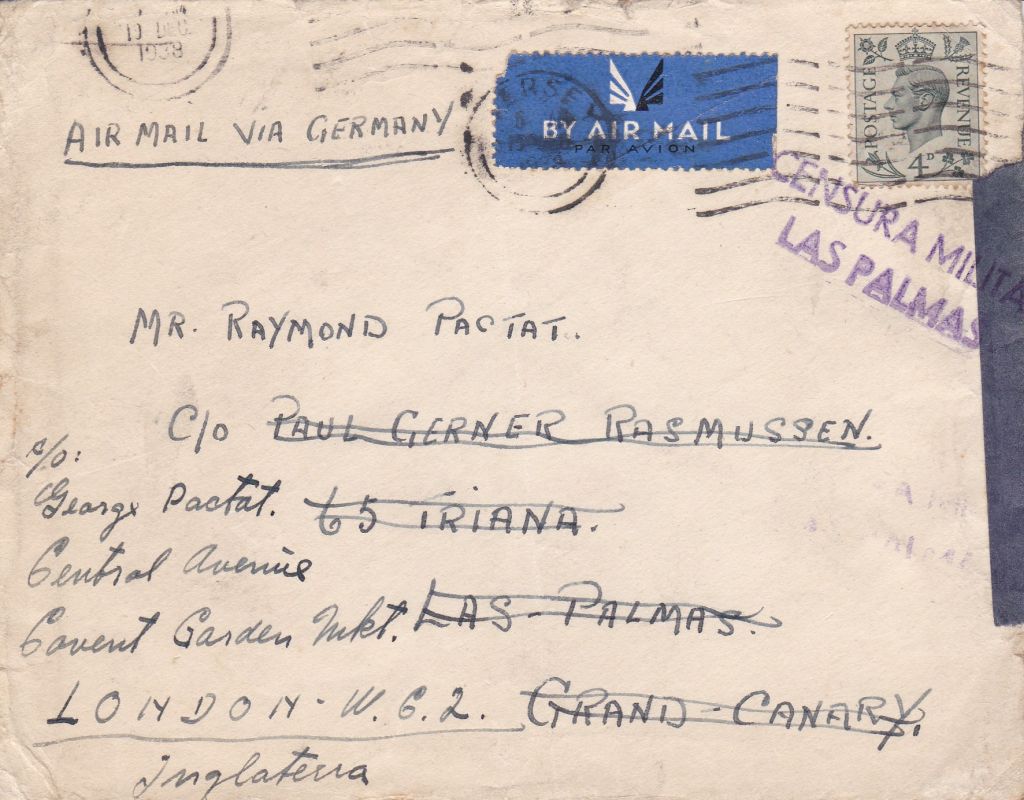 10 DEC
1938
AIR MAIL VIA GERMANY
JERSEY
BY AIR MAIL
PAR AVION
POSTAGE
REVENUE
4D
CENSURA MILITA
LAS PALMAS
MR. RAYMOND PACTAT.
C/O PAUL GERNER RASMUSSEN.
65 TRIANA.
LAS-PALMAS.
GRAND-CANARY.
c/o:
George Pactat.
Central Avenue
Covent Garden Mkt.
LONDON-W.C.2.
Inglaterra